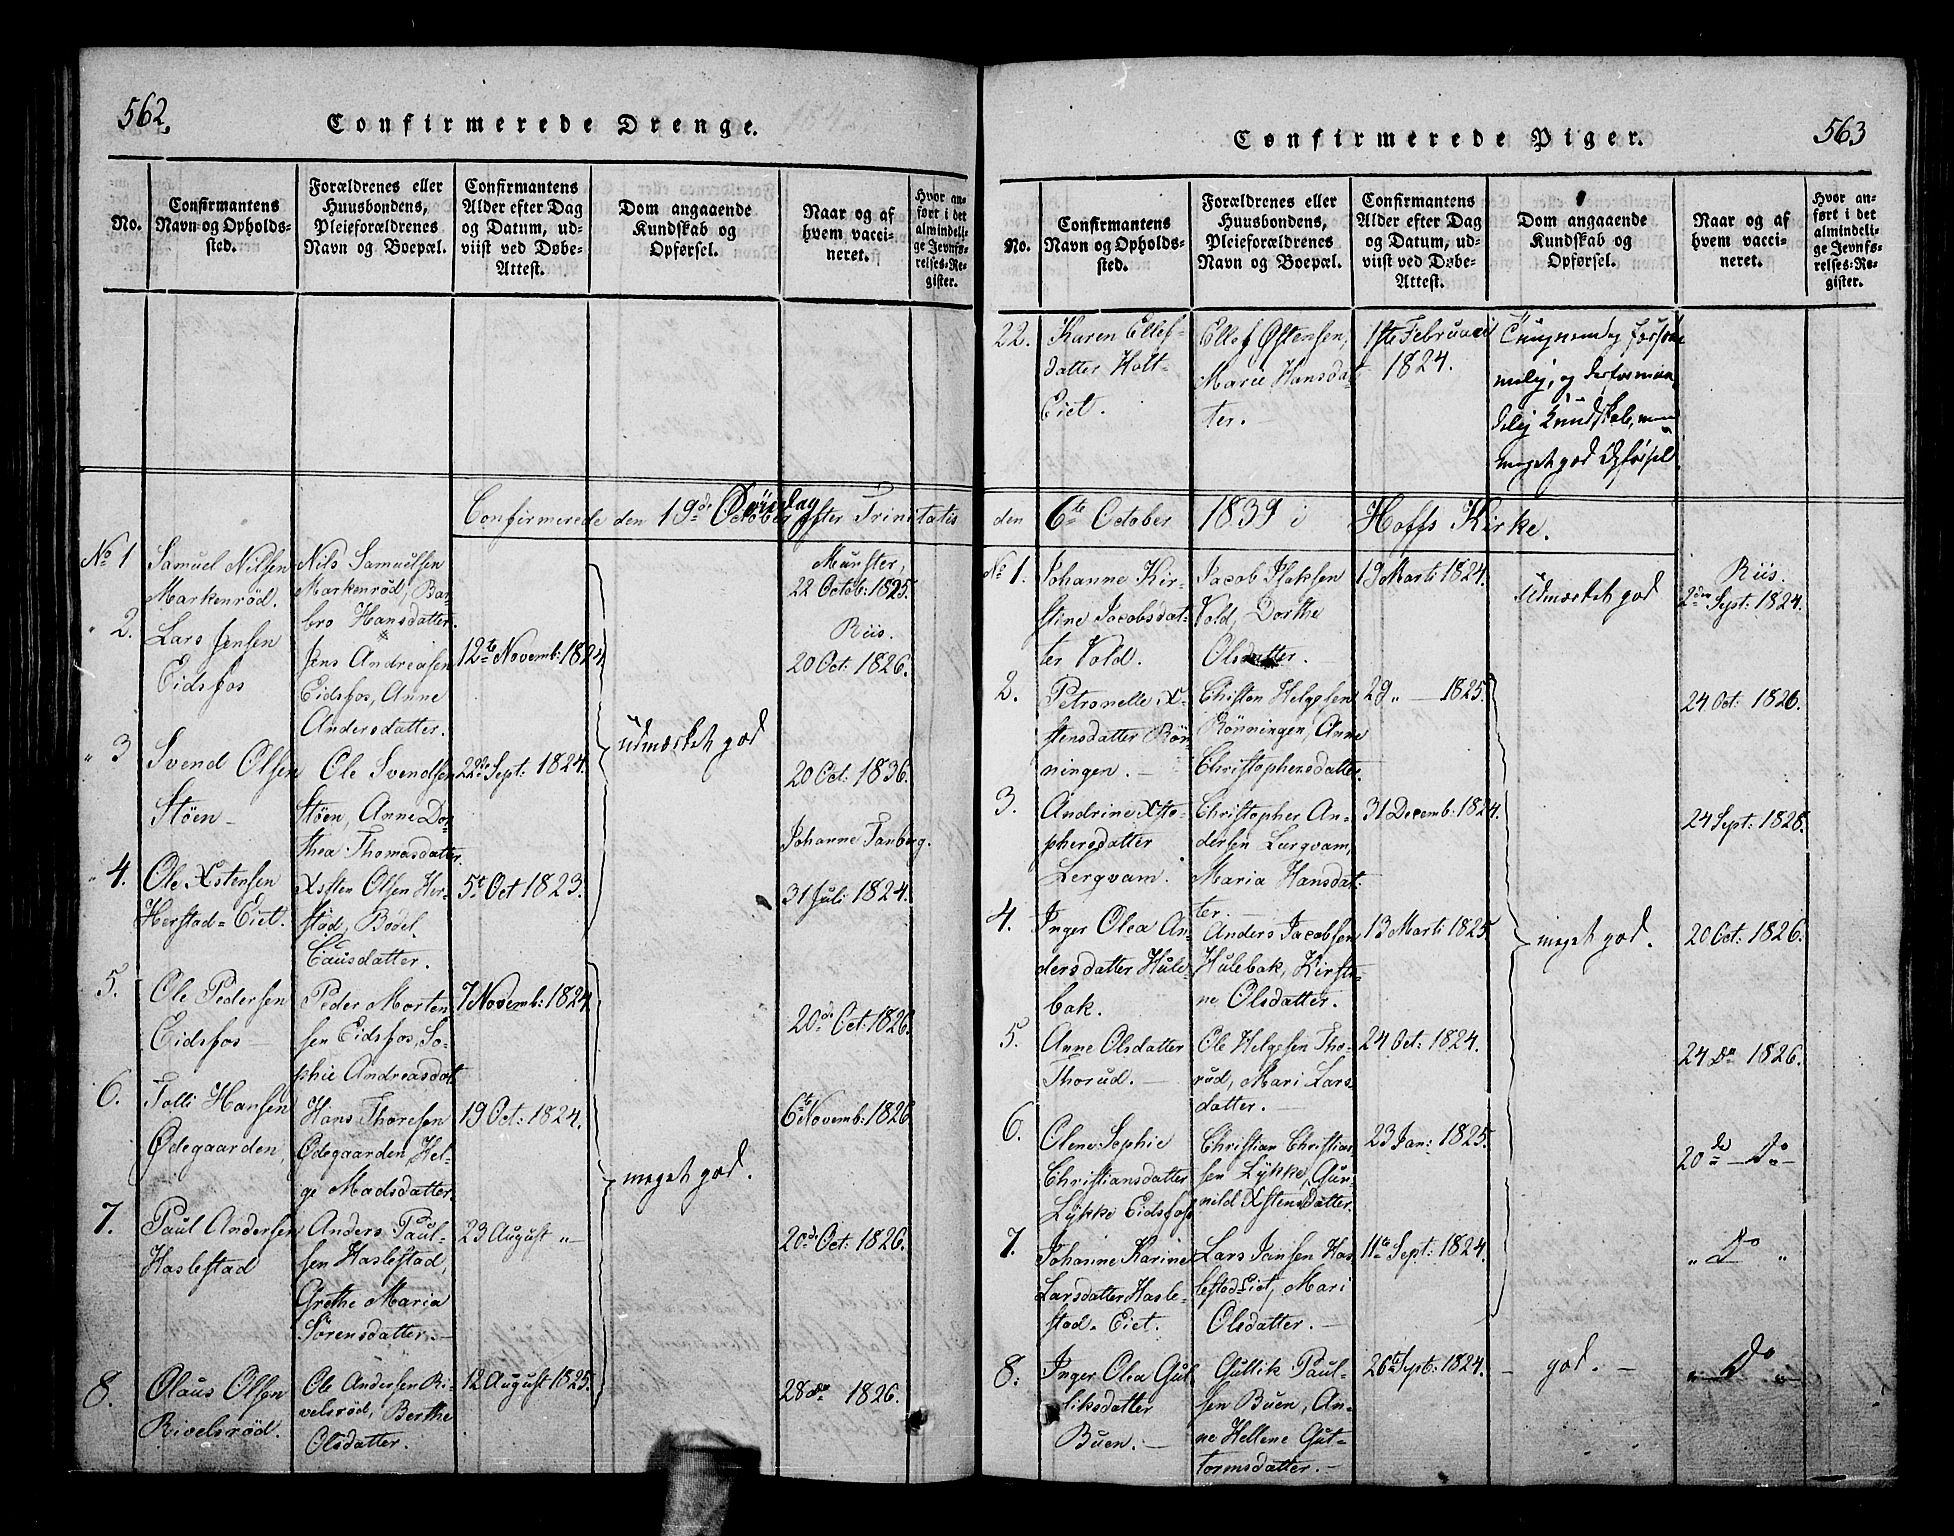 562.
Confirmerede Drenge.
No.
Confirmantens
Navn og Opholds-
sted.
Forældrenes eller
Huusbondens,
Pleieforældrenes
Navn og Boepæl.
Confirmantens
Alder efter Dag
og Datum, ud-
viist ved Døbe-
Attest.
Dom angaaende
Kundskab og
Opførsel.
Naar og af
hvem vacci-
neret.
Hvor an-
ført i det
almindeli-
ge Jevnfø-
relses-Re-
gister.
Confirmerede den 19de Søndag efter Trinitatis
No 1
Samuel Nilsen
Markenrød.
Nils Samuelsen
Markenrød, Bar-
bro Hansdatter.
Munster,
22 Octob: 1825.
" 2.
Lars Jensen
Eidsfos
Jens Andreasen
Eidsfos, Anne
Andersdatter.
12te Novemb: 1824
Riis.
20 Oct: 1826.
" 3
Svend Olsen
Støen-
Ole Svendsen
Støen, Anne Dor-
thea Thomasdatter.
22de Sept: 1824.
udmærket god
20 Oct: 1836.
" 4.
Ole Xstensen
Herstad-Eiet.
Xsten Olsen Her-
stad, Bodel
Causdatter.
5t Oct 1823.
Johanne Tanberg.
31 Juli 1824.
5.
Ole Pedersen
Eidsfos-
Peder Morten-
sen Eidsfos, So-
phie Andreasdat
7 Novemb: 1824
20de Oct: 1826.
6.
Tolli Hansen
Ødegaarden,
Hans Thoresen
Ødegaarden Hel-
ge Madsdatter.
19 Oct: 1824.
meget god.
6te Novemb: 1826
7.
Paul Andersen
Haslestad
Anders Paul-
sen Haslestad,
Grethe Maria
Sørensdatter.-
23 August "-
20de Oct: 1826.
8.
Olaus Olsen
Rivelsrød.
Ole Andersen Ri-
velsrød, Berthe
Olsdatter.
12 August 1825.
28 do 1826.
Confirmerede Piger.
563
No.
Confirmantens
Navn og Opholds-
sted.
Forældrenes eller
Huusbondens,
Pleieforældrenes
Navn og Boepæl.
Confirmantens
Alder efter Dag
og Datum, ud-
viist ved Døbe-
Attest.
Dom angaaende
Kundskab og
Opførsel.
Naar og af
hvem vacci-
neret.
Hvor an-
ført i det
almindeli-
ge Jevnfø-
relses-Re-
gister.
22.
Karen Ellef-
datter Holt-
Eiet.
Ellef Østensen,
Marie Hansdat
ter.-
1ste Februari
1824.
Kundskab,
meget god Opførsel
den 6te October 1839 i Hoffs Kirke.
No 1.
Johanne Kir-
stine Jacobsdat-
ter Vold.
Jacob Isaksen
Vold, Dorthe
Olsdatter.
19 Marti 1824.
udmærket god
Riis.
2den Sept: 1824.
2.
Petronelle X-
stensdatter Røn-
ningen.-
Christen Helgesen
Rønningen, Anne
Christophersdatter.
29 "- 1825.
24 Oct: 1826.
3.
Andrine Xsto-
phersdatter
Lergvam.
Christopher An-
dersen Lergvam,
Maria Hansdat-
ter.-
31 Decemb: 1824.
24 Sept: 1828.
4.
Inger Olea An-
dersdatter Hule-
bak.
Anders Jacobsen
Hulebak, Kirsti-
ne Olsdatter.
13 Marti 1825.
meget god.
20 Oct: 1826.
5.
Anne Olsdatter
Thorud.-
Ole Helgesen Tho-
rud, Mari Lars
datter.-
24 Oct: 1824.
24 do 1826.
6.
Olene Sophie
Christiansdatter
Lykke Eidsfos
Christian Christian-
sen Lykke, Gun-
nild Xstensdatter.
23 Jan: 1825.
20de- Do-
7.
Johanne Karine
Larsdatter Hasle-
stad-Eiet.
Lars Jansen Has-
lestad Eiet, Mari
Olsdatter.-
11te Sept: 1824.
" Do "
8.
Inger Olea Gul
liksdatter
Buen.-
Gullik Paul-
sen Buen, An-
ne Hellene Gut-
tormsdatter.-
26te Sept: 1824.
- god. -
" Do "